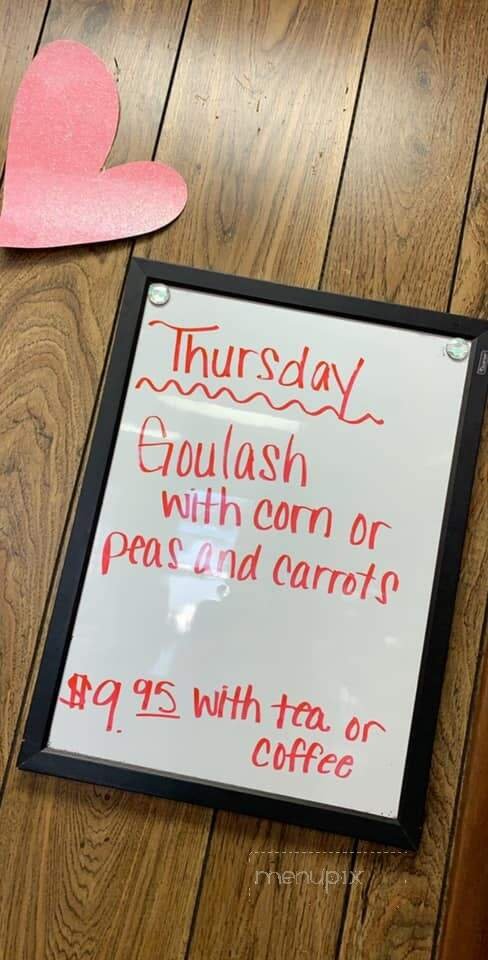 Thursday
Goulash
with corn or
peas and carrots
$9.95 with tea or
coffee
menupix